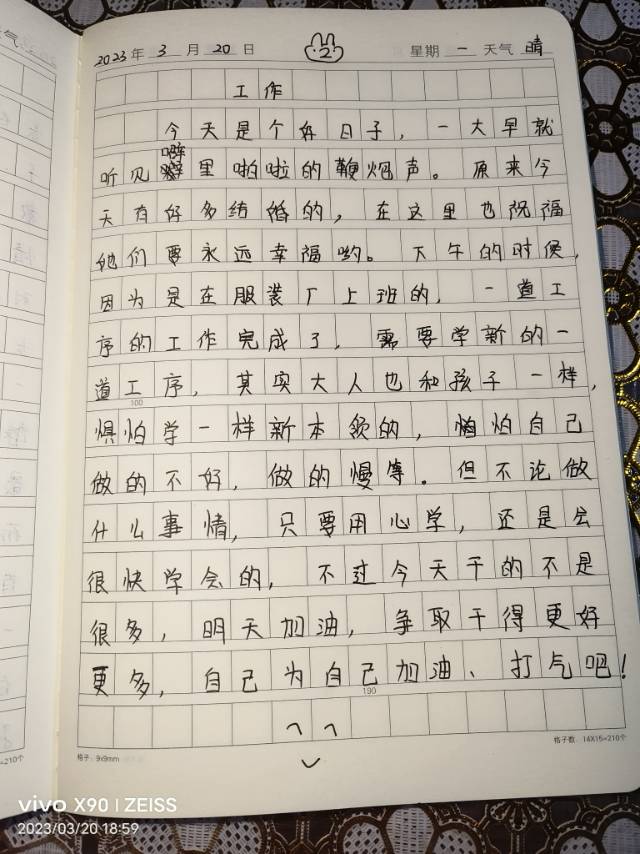 2023年 3 月 20 日 星期 一 天气 晴
工作
今天是个好日子，一大早就
听见噼里啪啦的鞭炮声。原来今
天有好多结婚的，在这里也祝福
他们要永远幸福哟。下午的时候，
因为是在服装厂上班的，一道工
序的工作完成了，需要学新的一
道工序，其实大人也和孩子一样，
100
惧怕学一样新本领的，怕自己
做的不好，做的慢等。但不论做
什么事情，只要用心学，还是会
很快学会的，不过今天干的不是
很多，明天加油，争取干得更好
更多，自己为自己加油、打气吧！
190
格子：9x9mm
格子数：14X15=210个
=210个
vivo X90 | ZEISS
2023/03/20 18:59